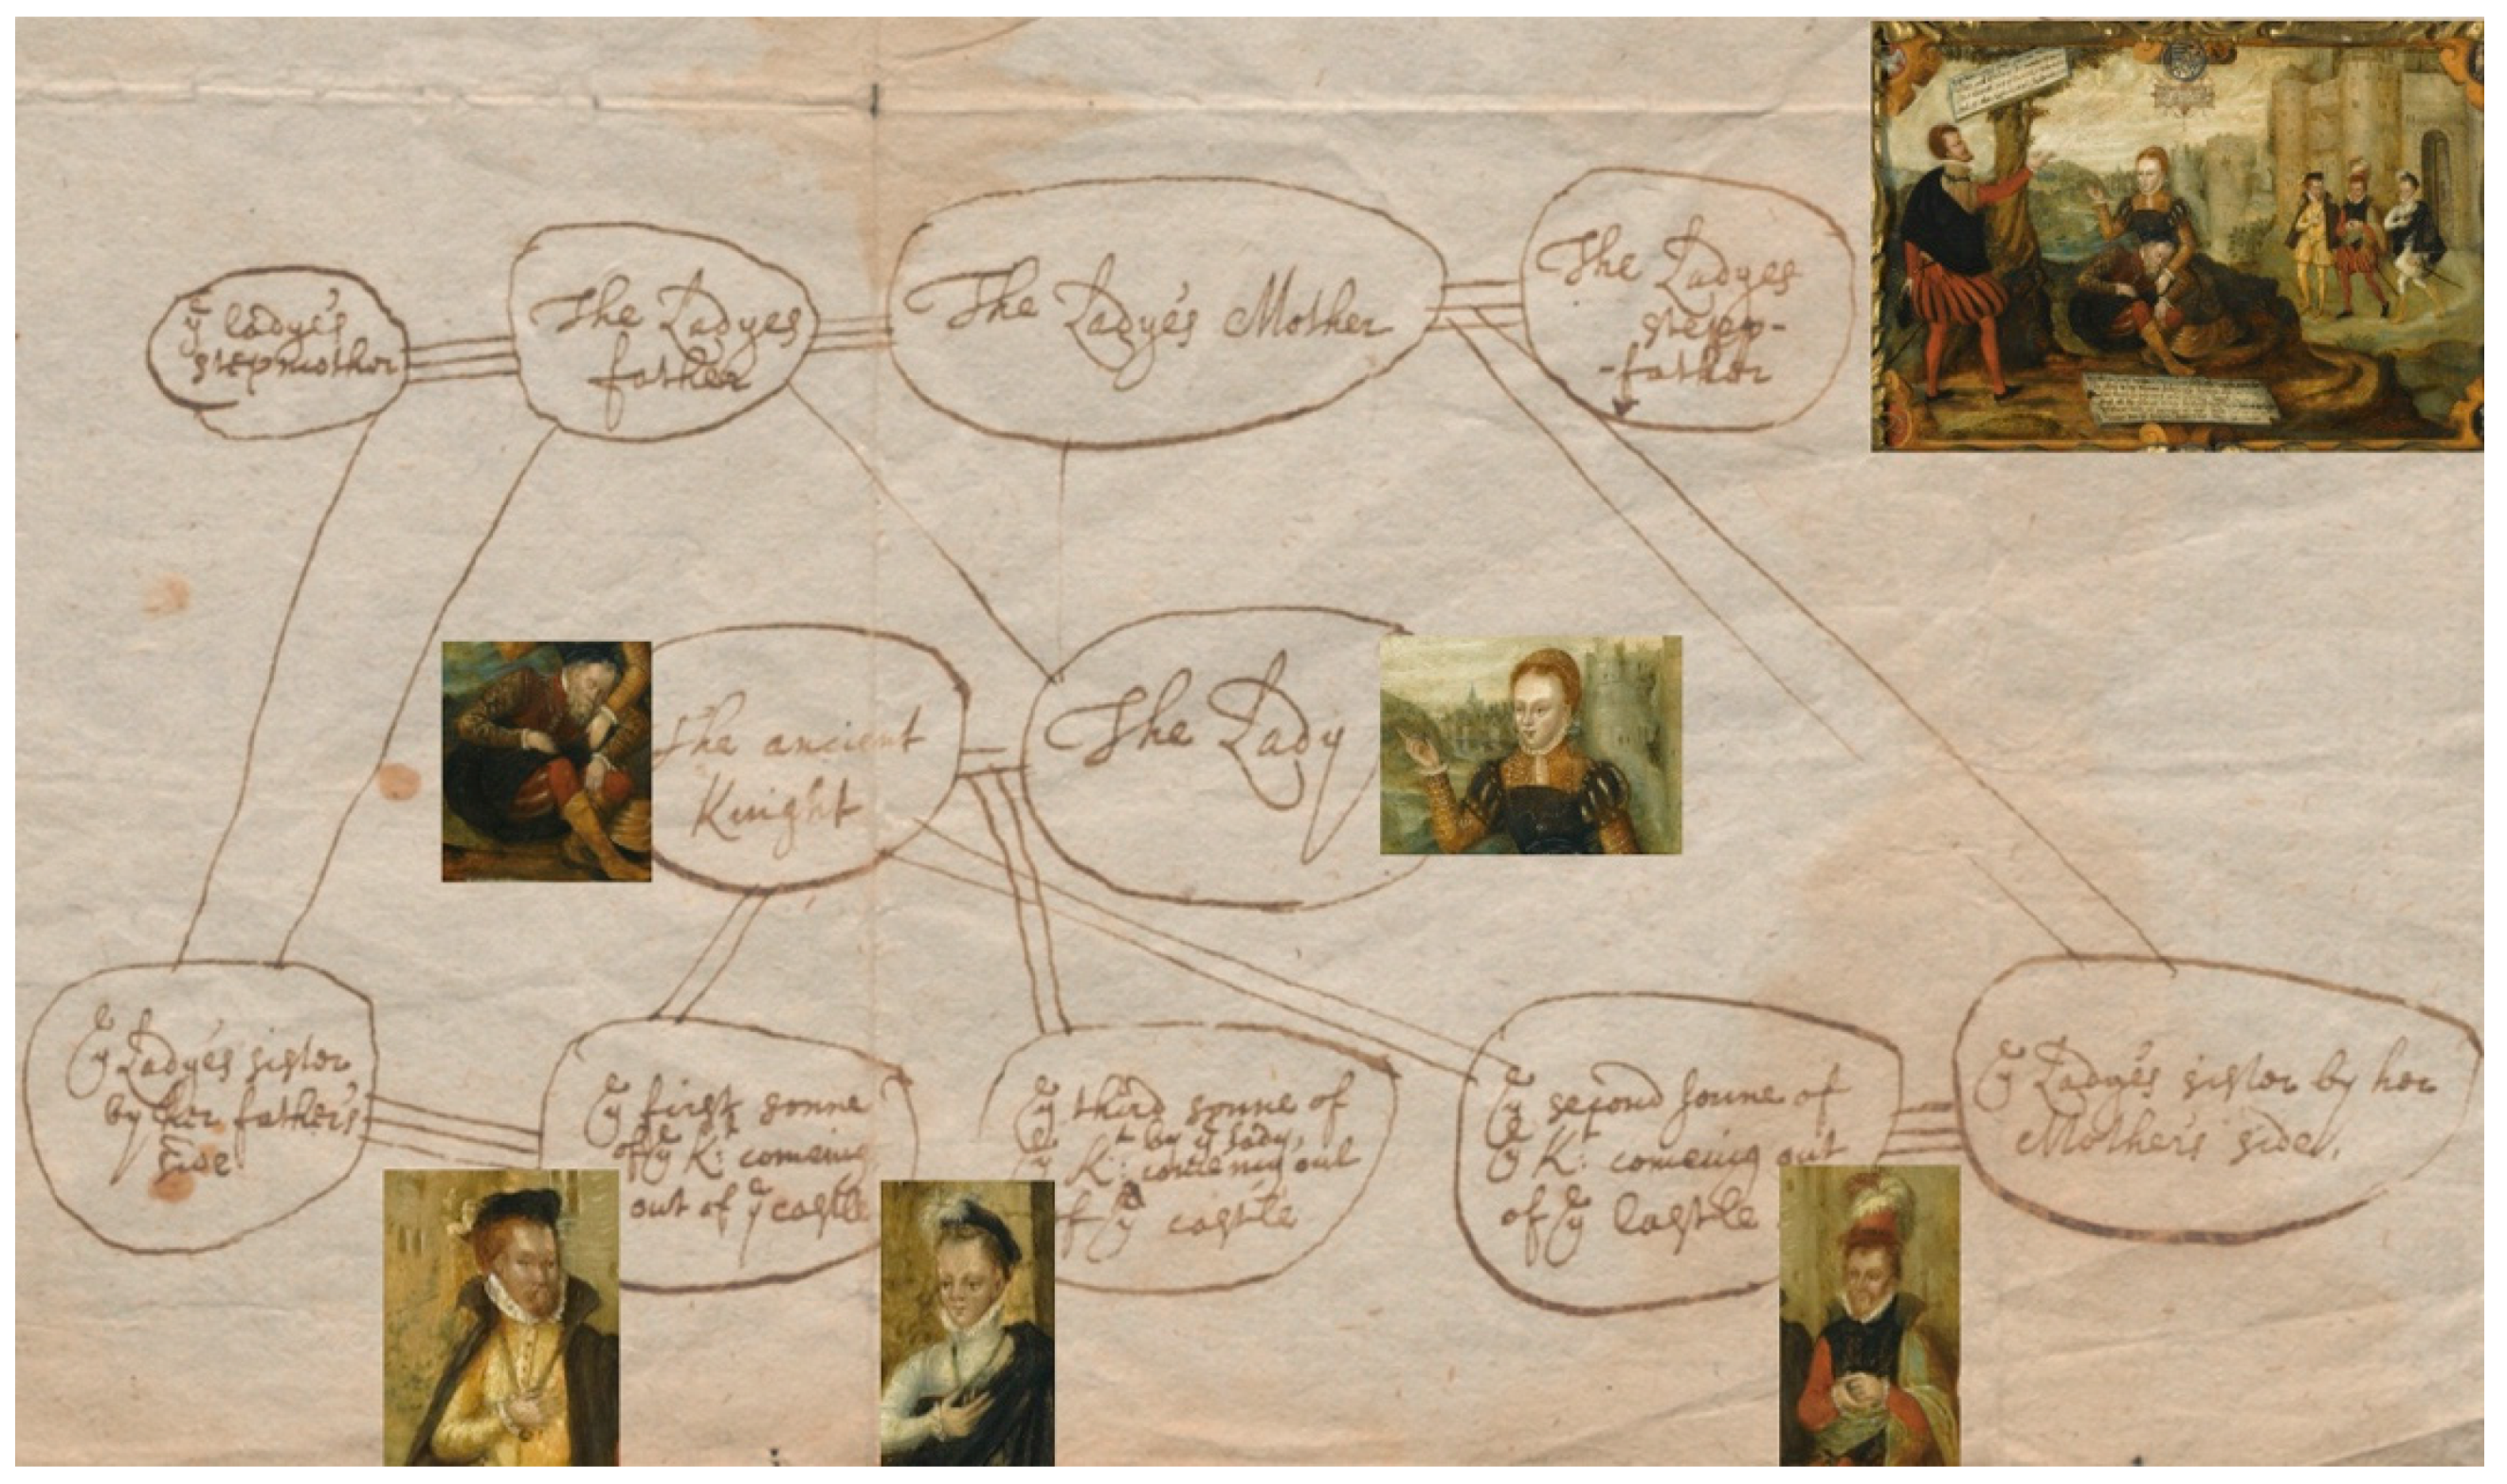 yᵉ ladye's
stepmother
The Ladyes
father
The Ladye's Mother
The Ladyes
father
The ancient
Knight
The Lady
yᵉ Ladyes sister
by her father's
side
yᵉ first sonne
of yᵉ Kᵗ: comeing
out of yᵉ castle
yᵉ third sonne of
yᵉ Kᵗ: by yᵉ lady,
comeing out
of yᵉ castle
yᵉ second sonne of
yᵉ Kᵗ: comeing out
of yᵉ castle
yᵉ Ladye's sister by her
Mother's side,